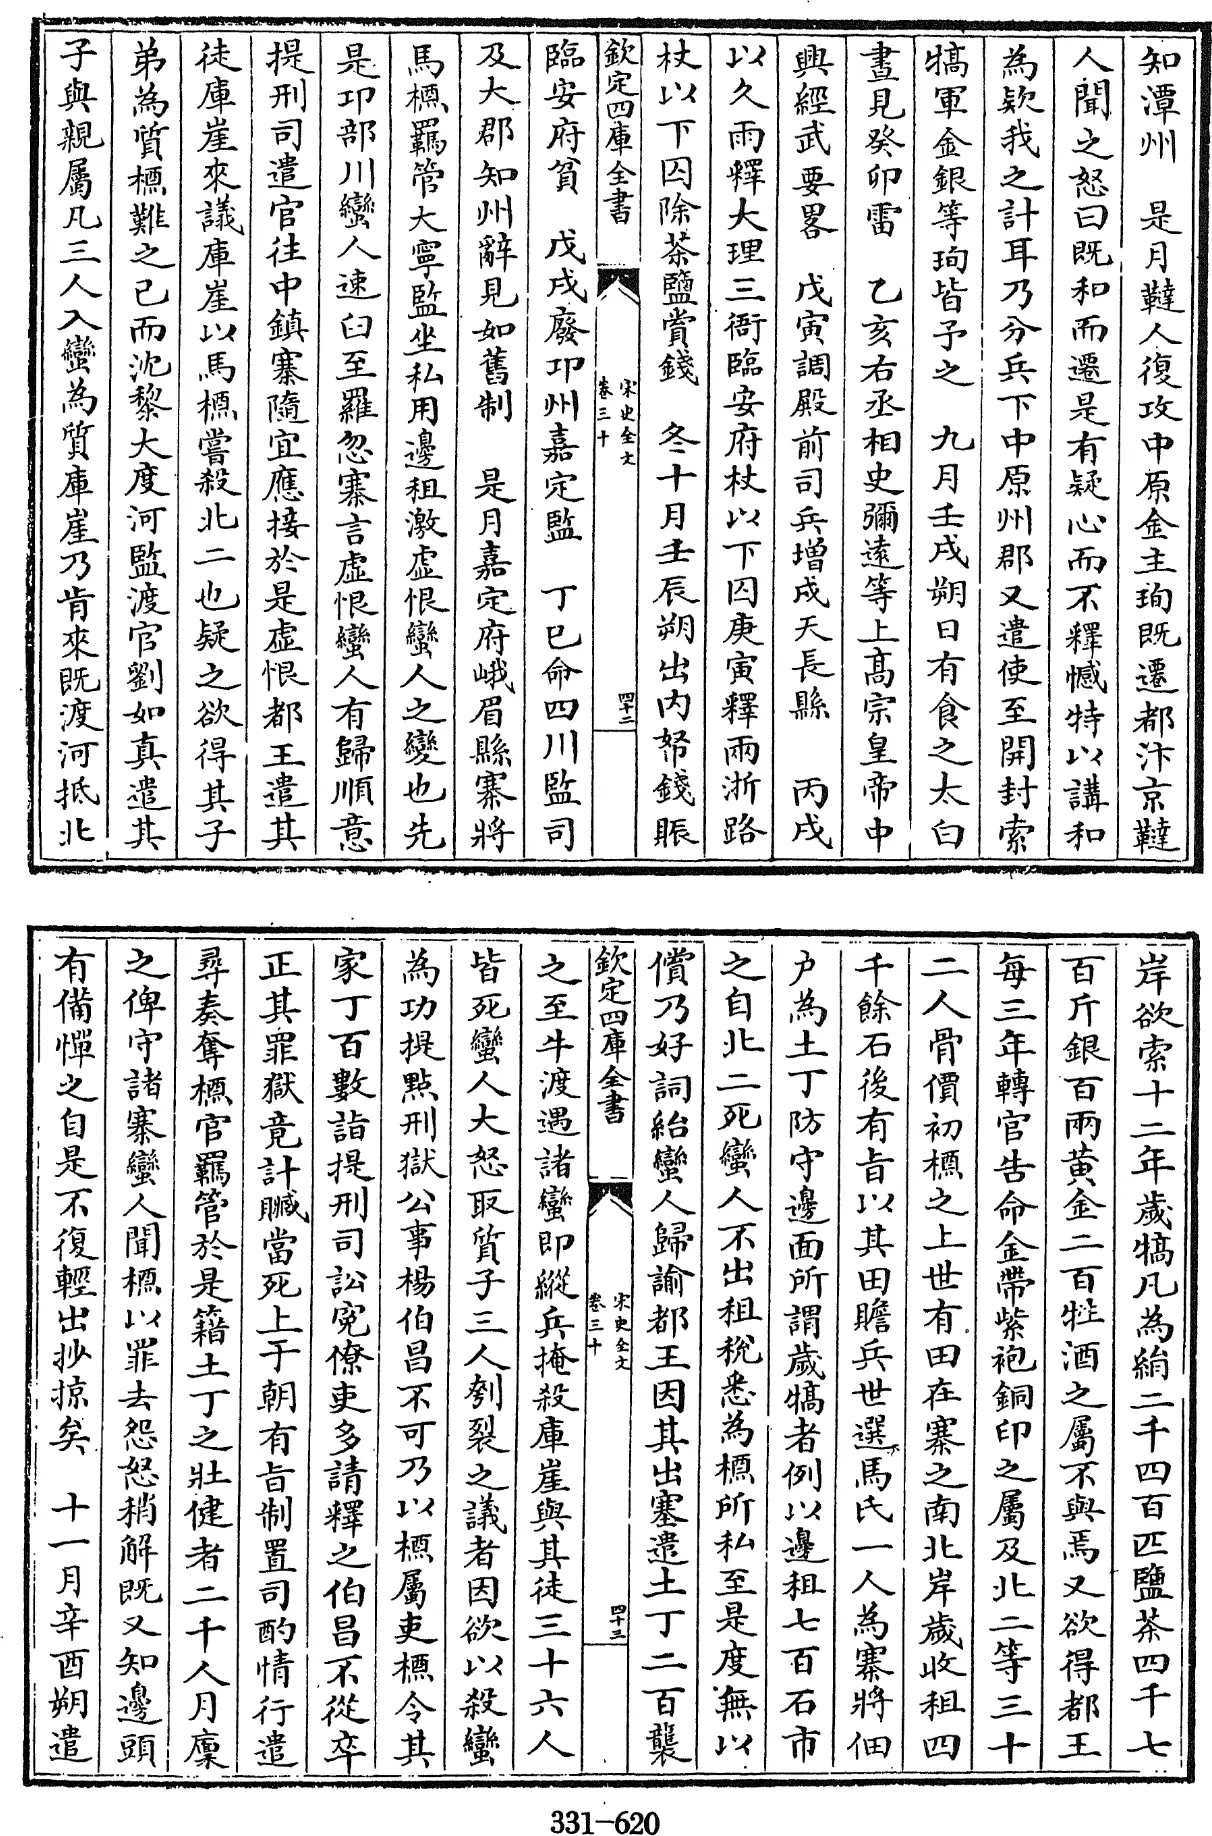 知潭州　是月韃人復攻中原金主珣既遷都汴京韃
人聞之怒曰既和而遷是有疑心而不釋憾特以講和
為欵我之計耳乃分兵下中原州郡又遣使至開封索
犒軍金銀等珣皆予之　九月壬戌朔日有食之太白
晝見癸卯雷　乙亥右丞相史彌遠等上髙宗皇帝中
興經武要畧　戊寅調殿前司兵增戍天長縣　丙戌
以久雨釋大理三衙臨安府杖以下囚庚寅釋兩浙路
杖以下囚除茶鹽賞錢　冬十月壬辰朔出内帑錢賑
欽定四庫全書
宋史全文
卷三十
四十二
臨安府貧　戊戌廢卭州嘉定監　丁巳命四川監司
及大郡知州辭見如舊制　是月嘉定府峨眉縣寨將
馬櫄羈管大寧監坐私用邊租激虛恨蠻人之變也先
是卭部川蠻人速臼至羅忽寨言虛恨蠻人有歸順意
提刑司遣官往中鎮寨隨宜應接於是虛恨都王遣其
徒庫崖來議庫崖以馬櫄嘗殺北二也疑之欲得其子
弟為質櫄難之已而沈黎大度河監渡官劉如真遣其
子與親屬凡三人入蠻為質庫崖乃肯來既渡河抵北
岸欲索十二年歲犒凡為絹二千四百匹鹽茶四千七
百斤銀百兩黄金二百牲酒之屬不與焉又欲得都王
每三年轉官告命金帶紫袍銅印之屬及北二等三十
二人骨價初櫄之上世有田在寨之南北岸歲收租四
千餘石後有旨以其田贍兵世選馬氏一人為寨將佃
户為土丁防守邊面所謂歲犒者例以邊租七百石市
之自北二死蠻人不出租稅悉為櫄所私至是度無以
償乃好詞紿蠻人歸諭都王因其出塞遣土丁二百襲
欽定四庫全書
宋史全文
卷三十
四十三
之至牛渡遇諸蠻即縱兵掩殺庫崖與其徒三十六人
皆死蠻人大怒取質子三人刳裂之議者因欲以殺蠻
為功提點刑獄公事楊伯昌不可乃以櫄屬吏櫄令其
家丁百數詣提刑司訟寃僚吏多請釋之伯昌不從卒
正其罪獄竟計贓當死上于朝有旨制置司酌情行遣
尋奏奪櫄官羈管於是籍土丁之壯健者二千人月廩
之俾守諸寨蠻人聞櫄以罪去怨怒稍解既又知邊頭
有備憚之自是不復輕出抄掠矣　十一月辛酉朔遣
331-620